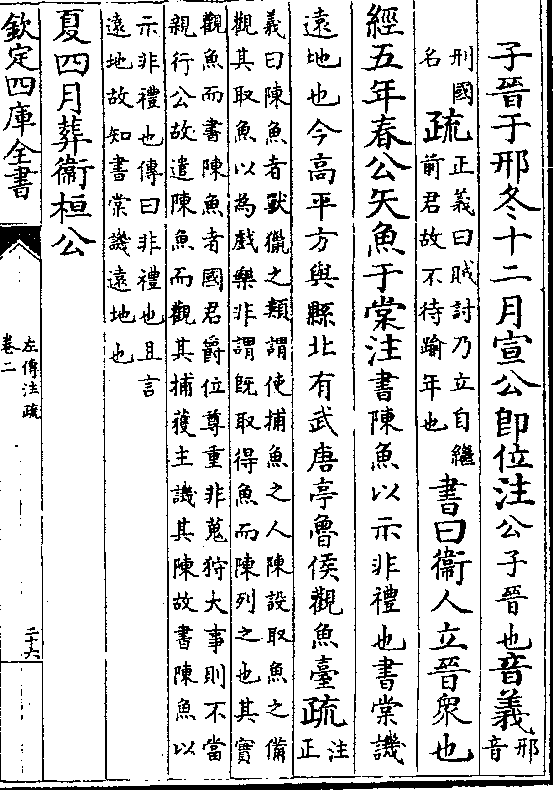 子晉于邢冬十二月宣公即位注公子晉也音義邢音
刑國名疏正義曰賊討乃立自繼前君故不待踰年也書曰衞人立晉衆也
經五年春公矢魚于棠注書陳魚以示非禮也書棠譏
遠地也今高平方與縣北有武唐亭魯侯觀魚臺疏注正
義曰陳魚者獸獵之類謂使捕魚之人陳設取魚之備
觀其取魚以為戲樂非謂既取得魚而陳列之也其實
觀魚而書陳魚者國君爵位尊重非蒐狩大事則不當
親行公故遣陳魚而觀其捕獲主譏其陳故書陳魚以
示非禮也傳曰非禮也且言
遠地故知書棠譏遠地也
夏四月葬衞桓公
欽定四庫全書
左傳注疏
卷二
二十六